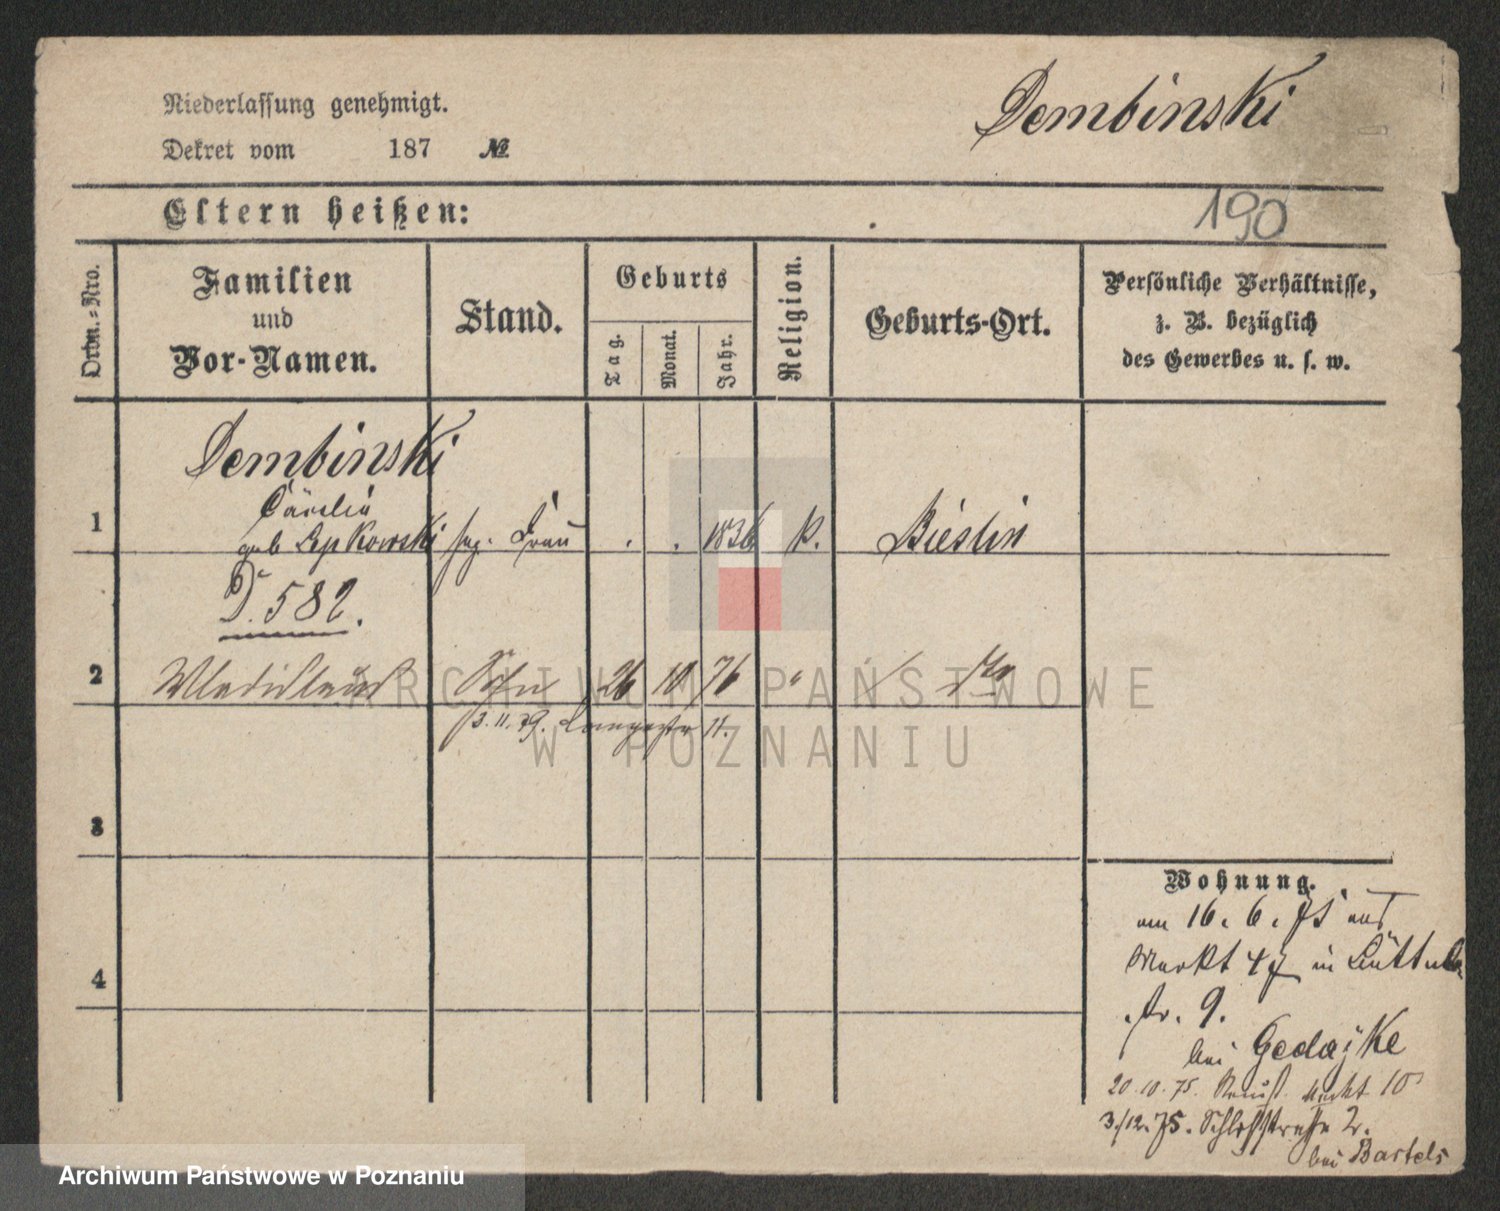 Dembinski
Niederlassung genehmigt.
Dekret vom 187 №
Eltern heißen:
190
Ordn.-Nro.
Familien
und
Vor-Namen.
Stand.
Geburts
Tag.
Monat.
Jahr.
Religion.
Geburts-Ort.
Persönliche Verhältnisse,
z. B. bezüglich
des Gewerbes u. s. w.
Dembinski
1 Cäcilia
geb Lepkowski Frau . . 1836 k. Bieslin
D. 582.
2 Wladislaus Sohn 26 10 76 "
3.11.79. Langestr 11.
3
4
Wohnung.
am 16. 6. 75 aus
Markt 47 in Büttel
str. 9.
bei
20.10.75. Neust. Markt 10
3/12.75. Schloßstraße 2.
bei Bartels
ARCHIWUM PAŃSTWOWE
W POZNANIU
Archiwum Państwowe w Poznaniu